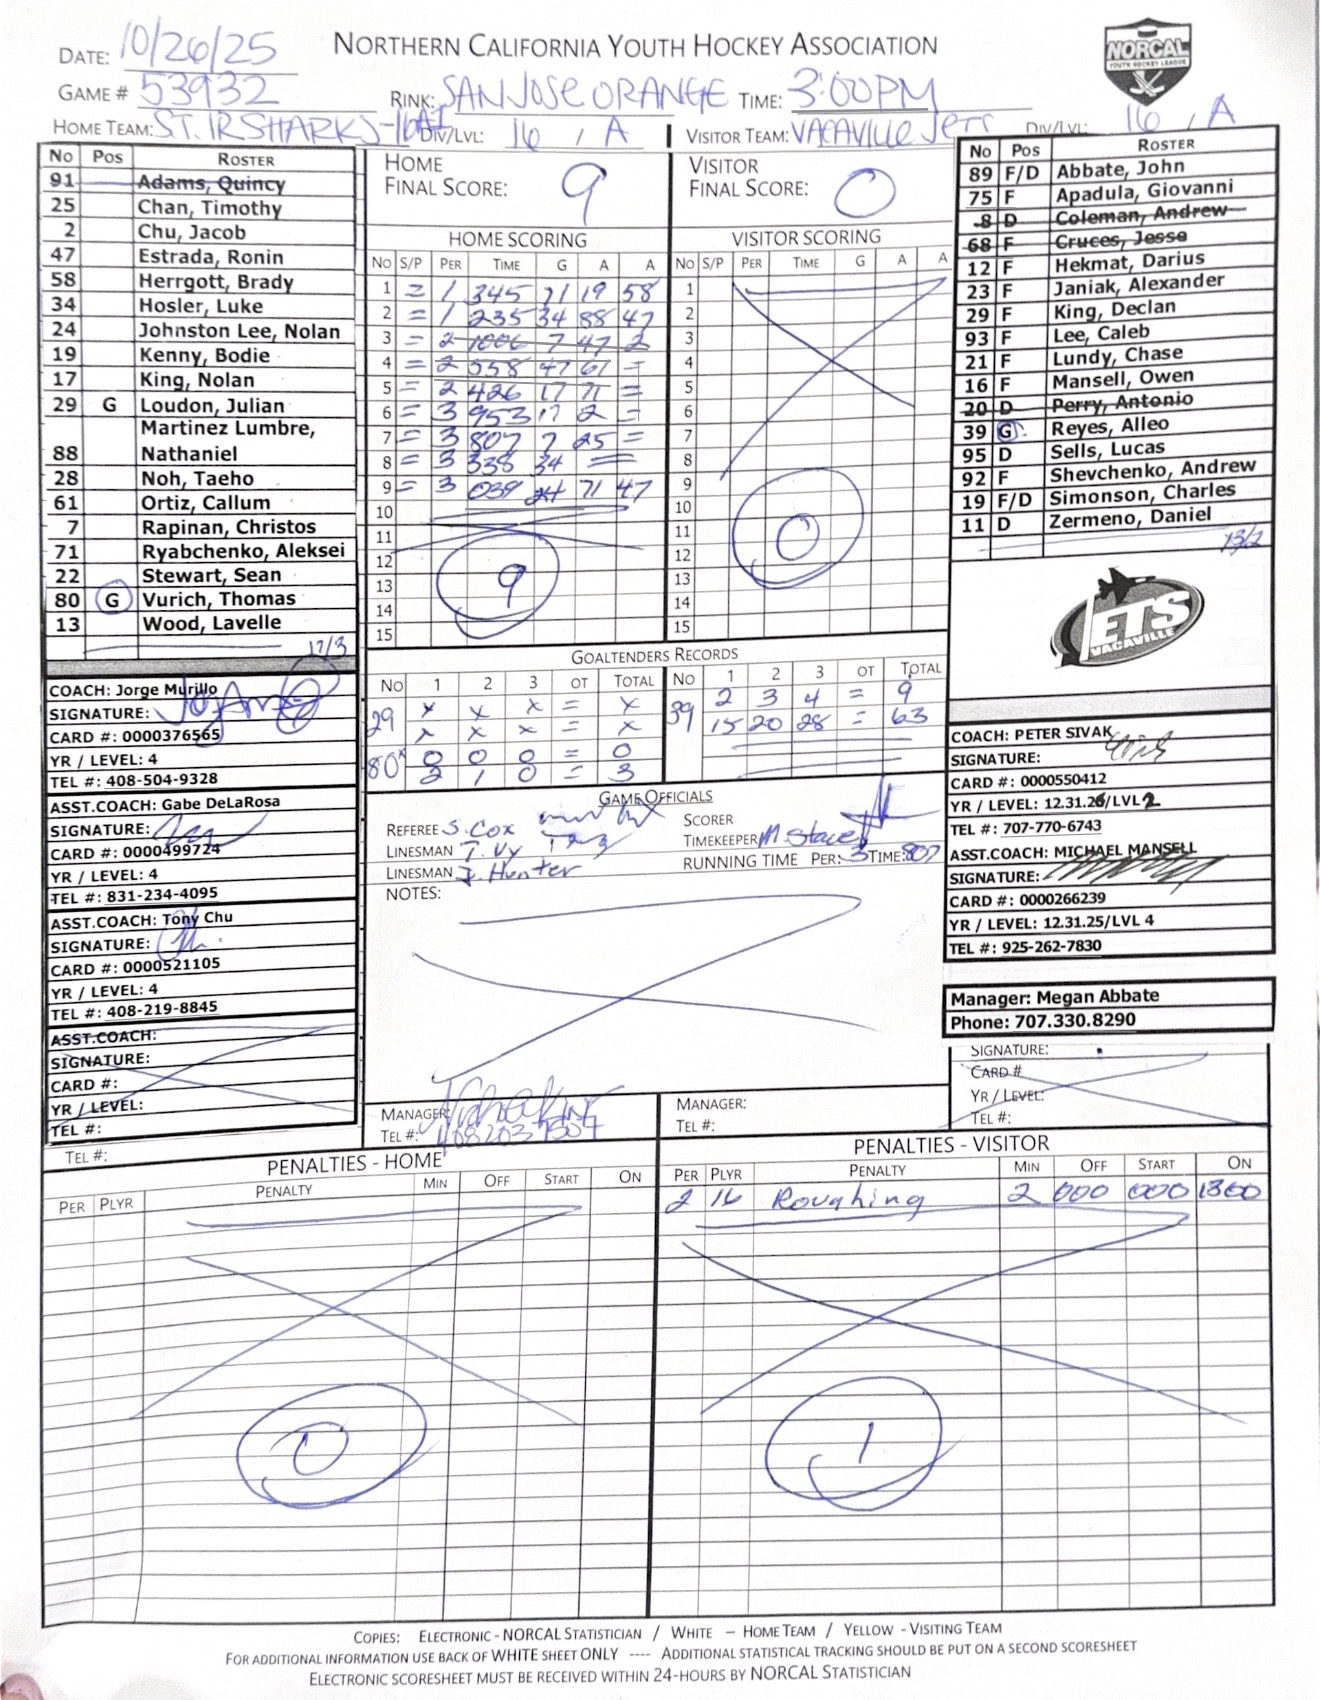 NORTHERN CALIFORNIA YOUTH HOCKEY ASSOCIATION
NORCAL
YOUTH HOCKEY LEAGUE
DATE: 10/26/25
GAME # 53932
RINK: SAN JOSE ORANGE TIME: 3:00PM
HOME TEAM: ST. JR SHARKS-16A1 DIV/LVL: 16 / A
VISITOR TEAM: VACAVILLE JETS DIV/LVL: 16 / A
No Pos ROSTER
91 Adams, Quincy
25 Chan, Timothy
2 Chu, Jacob
47 Estrada, Ronin
58 Herrgott, Brady
34 Hosler, Luke
24 Johnston Lee, Nolan
19 Kenny, Bodie
17 King, Nolan
29 G Loudon, Julian
Martinez Lumbre,
88 Nathaniel
28 Noh, Taeho
61 Ortiz, Callum
7 Rapinan, Christos
71 Ryabchenko, Aleksei
22 Stewart, Sean
80 G Vurich, Thomas
13 Wood, Lavelle
17/3
COACH: Jorge Murillo
SIGNATURE:
CARD #: 0000376565
YR / LEVEL: 4
TEL #: 408-504-9328
ASST.COACH: Gabe DeLaRosa
SIGNATURE:
CARD #: 0000499724
YR / LEVEL: 4
TEL #: 831-234-4095
ASST.COACH: Tony Chu
SIGNATURE:
CARD #: 0000521105
YR / LEVEL: 4
TEL #: 408-219-8845
ASST.COACH:
SIGNATURE:
CARD #:
YR / LEVEL:
TEL #:
TEL #:
HOME
FINAL SCORE: 9
VISITOR
FINAL SCORE: 0
HOME SCORING
NO S/P PER TIME G A A
1 = 1 345 71 19 58
2 = 1 235 34 88 47
3 = 2 1006 7 47 2
4 = 2 558 47 61 -
5 = 2 426 17 71 =
6 = 3 953 17 2 =
7 = 3 807 7 25 =
8 = 3 338 34 =
9 = 3 039 24 71 47
10
11
12
13
14
15
9
VISITOR SCORING
NO S/P PER TIME G A A
1
2
3
4
5
6
7
8
9
10
11
12
13
14
15
0
GOALTENDERS RECORDS
NO 1 2 3 OT TOTAL
29 x x x = x
x x x = x
80 0 0 0 = 0
2 1 0 = 3
NO 1 2 3 OT TOTAL
39 2 3 4 = 9
15 20 28 = 63
GAME OFFICIALS
REFEREE S. Cox
LINESMAN T. Vy
LINESMAN J. Hunter
SCORER
TIMEKEEPER M. Stace
RUNNING TIME PER: 3 TIME: 807
NOTES:
MANAGER:
TEL #: 4082037507
MANAGER:
TEL #:
No Pos ROSTER
89 F/D Abbate, John
75 F Apadula, Giovanni
8 D Coleman, Andrew
68 F Cruces, Jesse
12 F Hekmat, Darius
23 F Janiak, Alexander
29 F King, Declan
93 F Lee, Caleb
21 F Lundy, Chase
16 F Mansell, Owen
20 D Perry, Antonio
39 G Reyes, Alleo
95 D Sells, Lucas
92 F Shevchenko, Andrew
19 F/D Simonson, Charles
11 D Zermeno, Daniel
JETS
VACAVILLE
COACH: PETER SIVAK
SIGNATURE:
CARD #: 0000550412
YR / LEVEL: 12.31.26/LVL 2
TEL #: 707-770-6743
ASST.COACH: MICHAEL MANSELL
SIGNATURE:
CARD #: 0000266239
YR / LEVEL: 12.31.25/LVL 4
TEL #: 925-262-7830
Manager: Megan Abbate
Phone: 707.330.8290
SIGNATURE:
CARD #
YR / LEVEL:
TEL #:
PENALTIES - HOME
PER PLYR PENALTY MIN OFF START ON
0
PENALTIES - VISITOR
PER PLYR PENALTY MIN OFF START ON
2 16 Roughing 2 000 000 1300
1
COPIES: ELECTRONIC - NORCAL STATISTICIAN / WHITE – HOME TEAM / YELLOW - VISITING TEAM
FOR ADDITIONAL INFORMATION USE BACK OF WHITE SHEET ONLY ---- ADDITIONAL STATISTICAL TRACKING SHOULD BE PUT ON A SECOND SCORESHEET
ELECTRONIC SCORESHEET MUST BE RECEIVED WITHIN 24-HOURS BY NORCAL STATISTICIAN